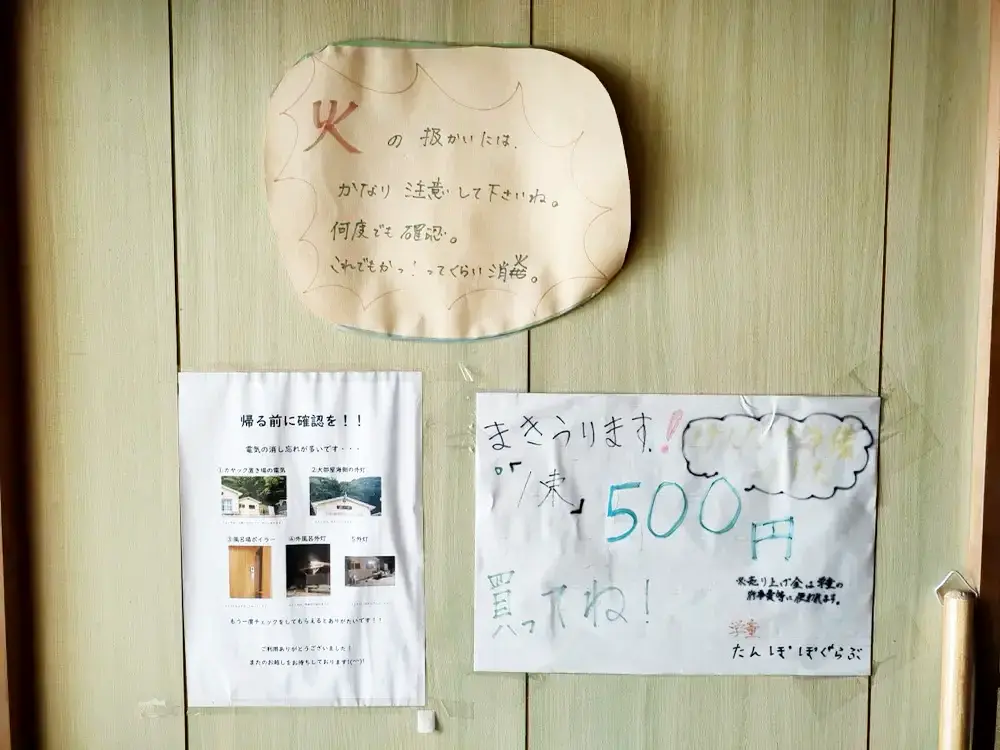 火の扱かいには、
かなり注意して下さいね。
何度でも確認。
これでもかっ！ってくらい消
帰る前に確認を！！
電気の消し忘れが多いです・・・
①カヤック置き場の電気
②大部屋海側の外灯
③風呂場ボイラー
④外風呂外灯
5外灯
もう一度チェックをしてもらえるとありがたいです！！
ご利用ありがとうございました！
またのお越しをお待ちしております!(^^)!
まきうります！
「1束」
500円
買ってね！
※売り上げ金は学童の
行事費等に使われます。
学童
たんぽぽくらぶ